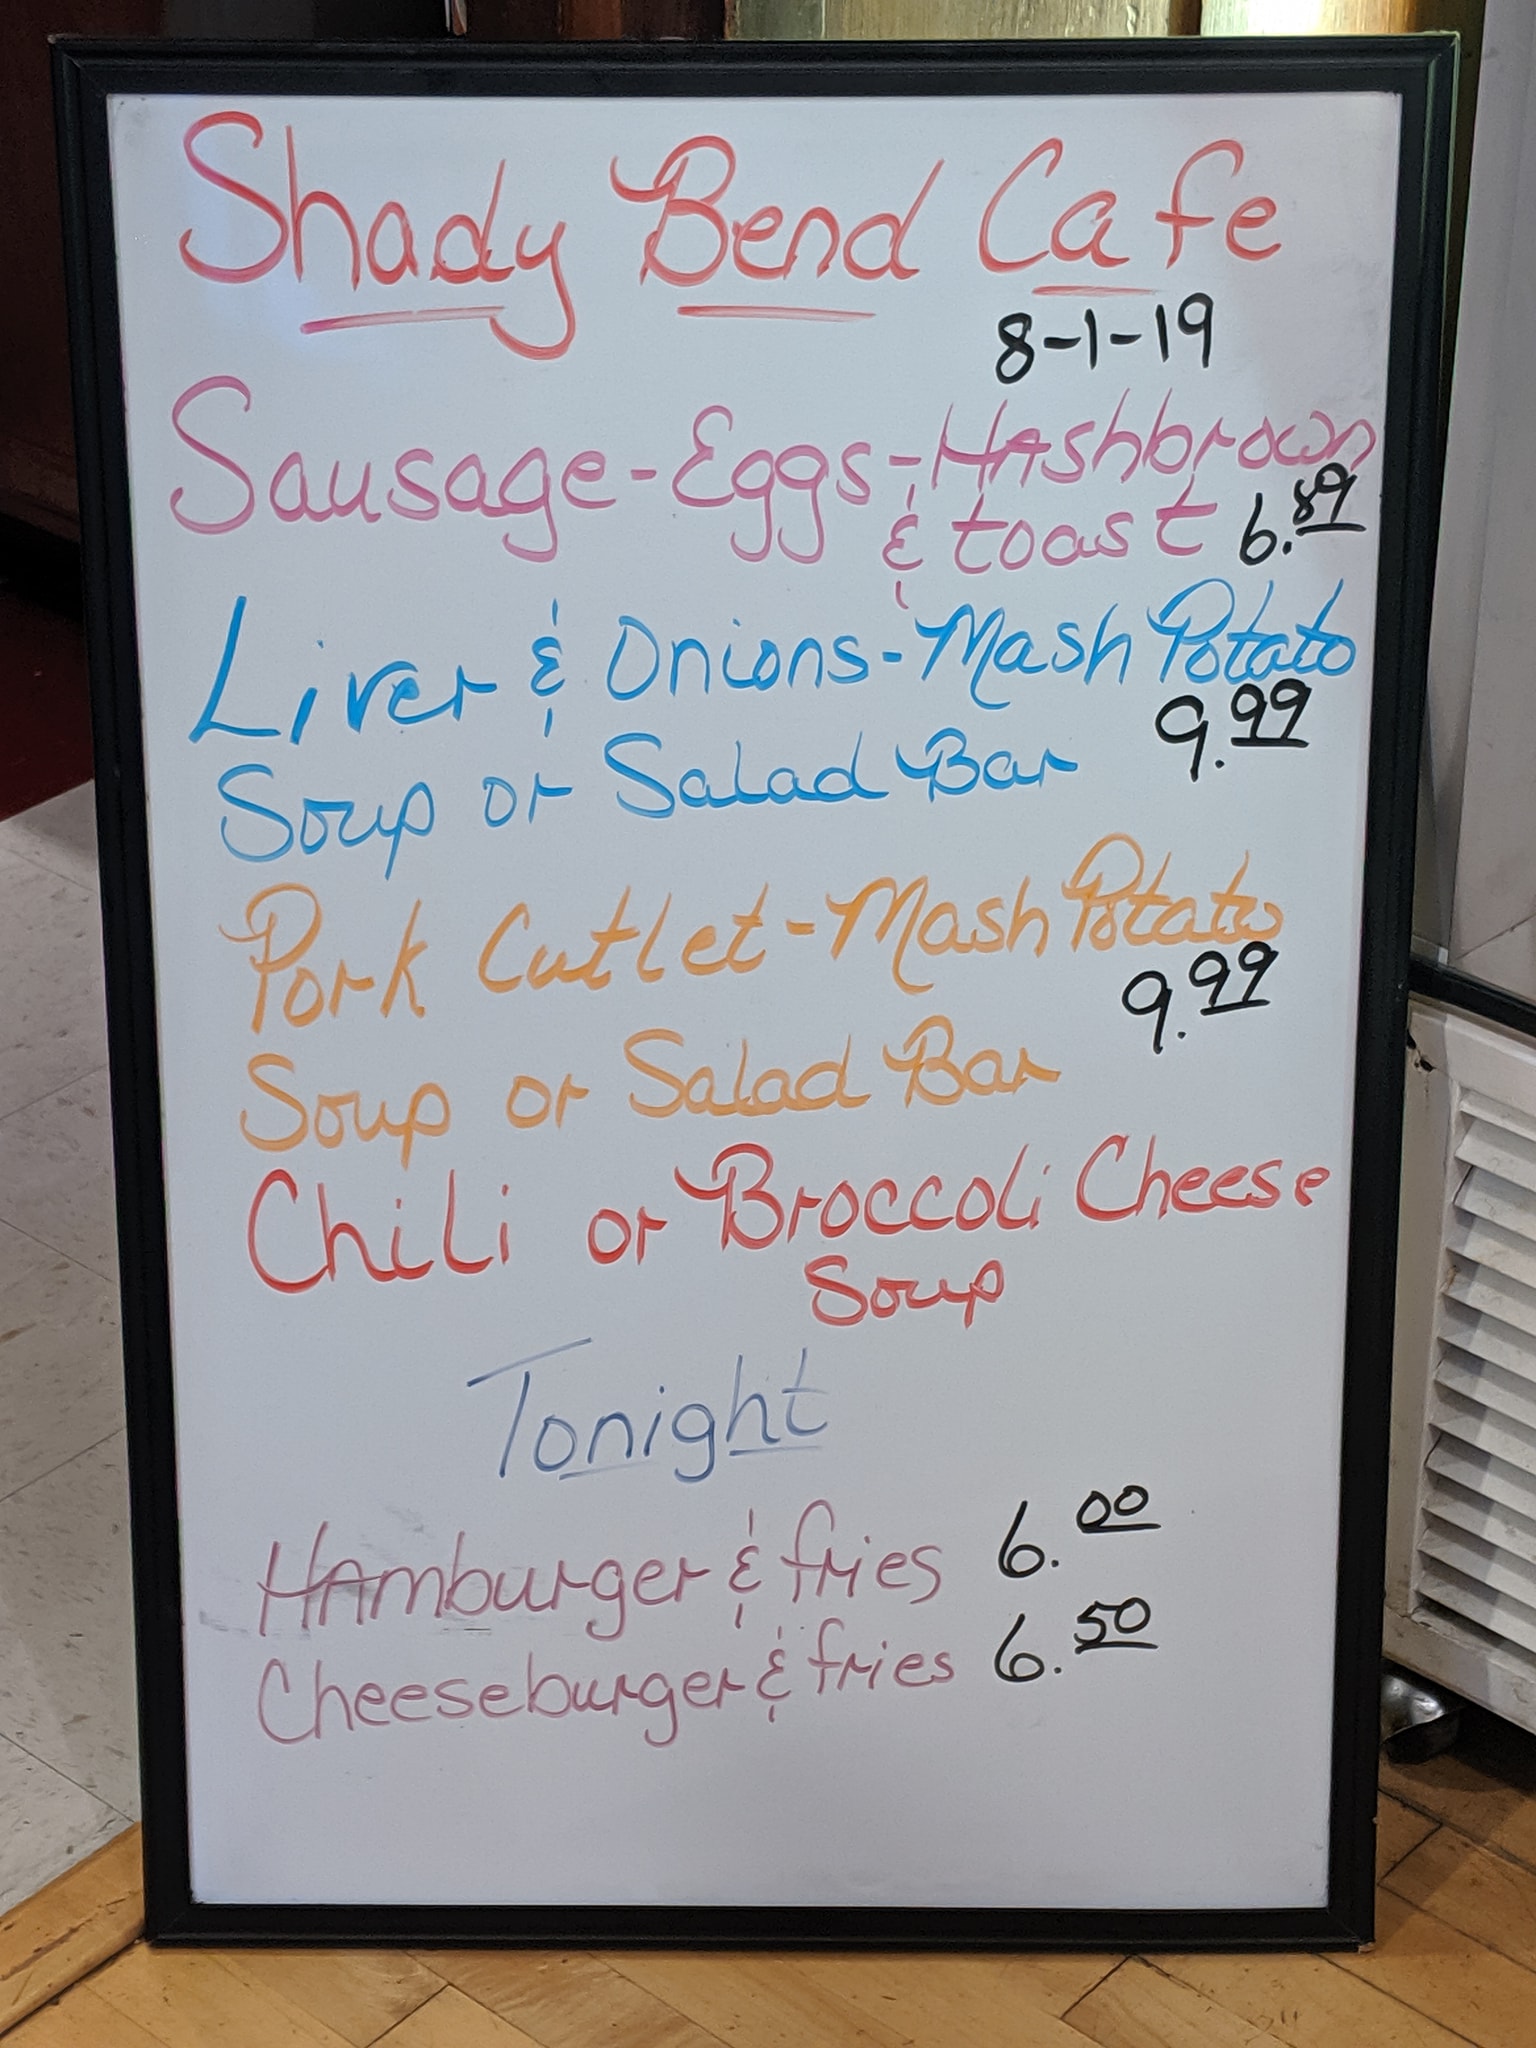 Shady Bend Cafe
8-1-19
Sausage-Eggs-Hashbrown
& toast 6.89
Liver & Onions-Mash Potato
9.99
Soup or Salad Bar
Pork Cutlet-Mash Potato
9.99
Soup or Salad Bar
Chili or Broccoli Cheese
Soup
Tonight
Hamburger & fries 6.00
Cheeseburger & fries 6.50